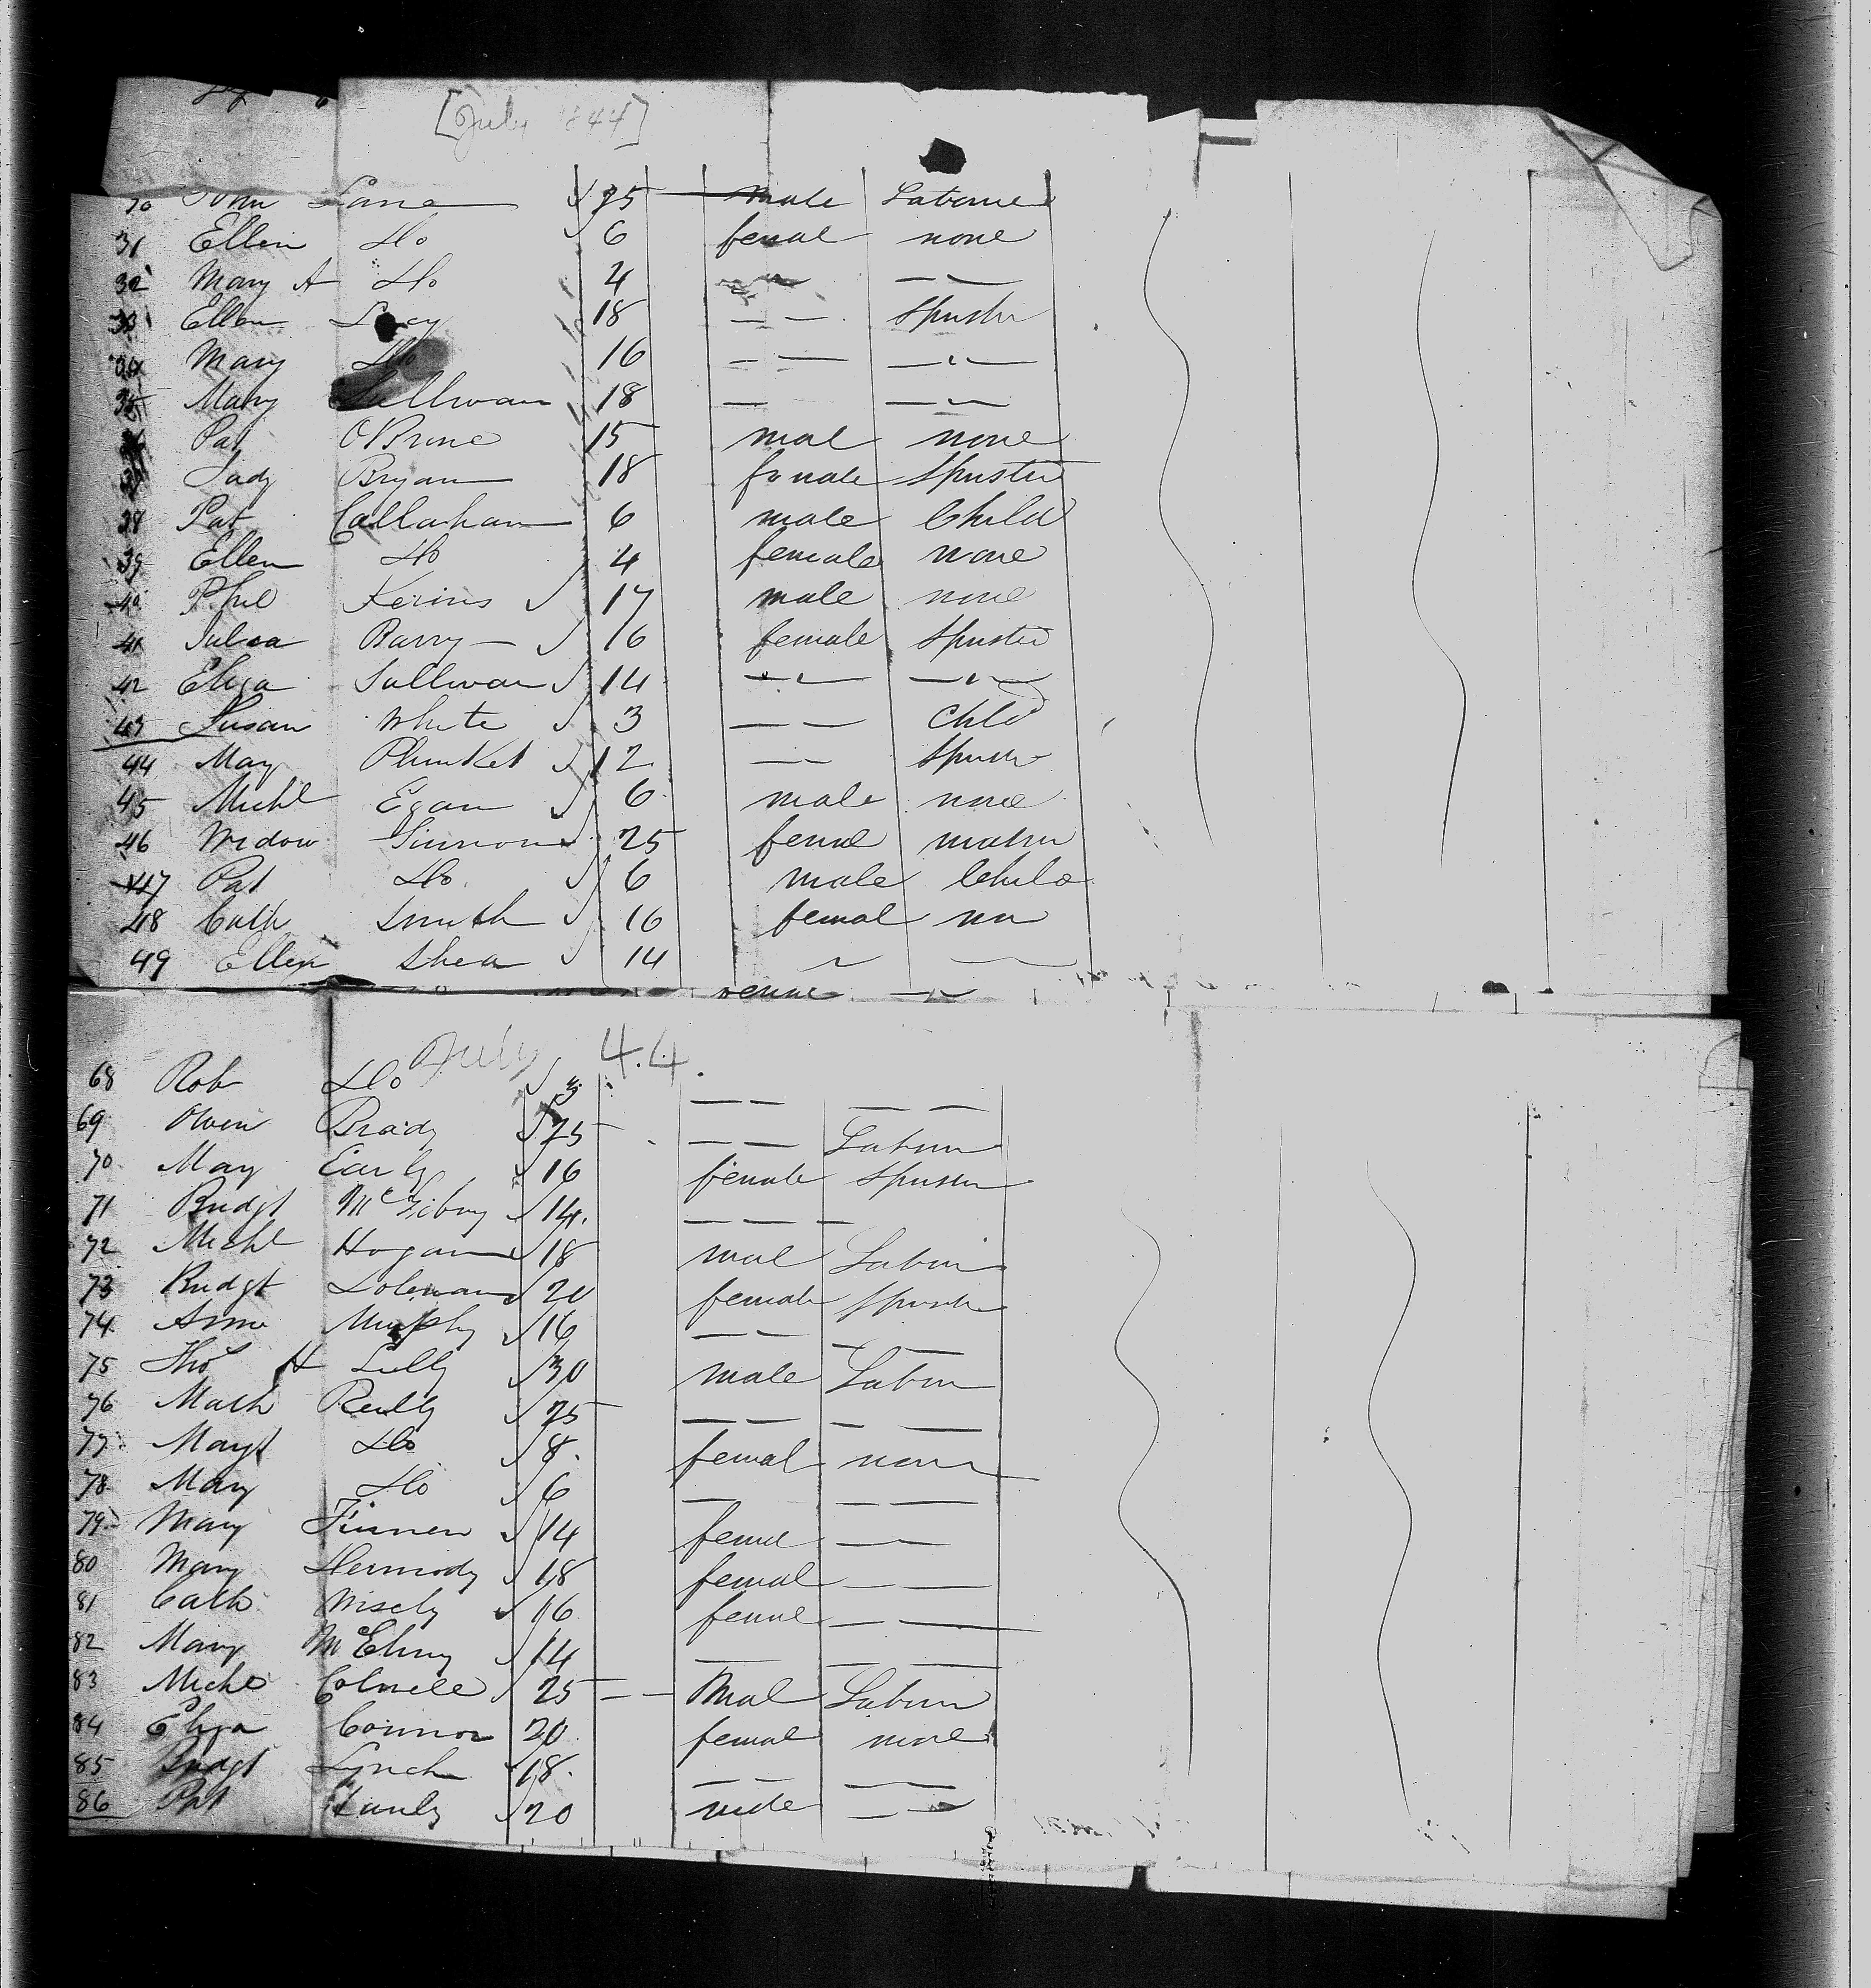 [July 1844]
30 John Lane 25 male Labourer
31 Ellen Do 6 femal none
32 Mary A Do 4 — — — —
33 Ellen 18 — — Spinster
34 Mary Do 16 — — — " —
35 Mary Sullivan 18 — — " —
36 Pat OBrine 15 mal none
37 Judy Bryan 18 female Spinster
38 Pat Callahan 6 male Child
39 Ellen Do 4 female none
40 Phil Kerins 17 male none
41 Julia Barry — 16 female Spinster
42 Eliza Sullivan 14 — " — — " —
43 Susan White 3 — — Child
44 May Plunket 12 — — Spinster
45 Michl Egan 6 male none
46 Widow 25 femal matron
47 Pat Do 6 male Child
48 Cath Smith 16 femal
49 Ellen Shea 14
July 44.
68 Rob Do 3 — — — —
69 Owen Brady 25 — — Labour
70 May Early 16 female Spinster
71 Bridgt McGibny 14. — — —
72 Michl Hogan 18 mal Labour
73 Bridgt 20 female Spinster
74 Murphy 16 — — — —
75 Thos H Lilly 30 male Labour
76 Math Reilly 25 — — — —
77 Margt Do 8. femal none
78 Mary Do 6 — — —
79 Mary Finnen 14 femal — —
80 Mary Dermody 18 femal — —
81 Cath 16 femal — —
82 Mary 14 — — —
83 Michl 25 — — Mal Labour
84 Eliza Connor 20 femal none
85 Bridgt Lynch 18. — — —
86 Pat Hanly 20 male — —